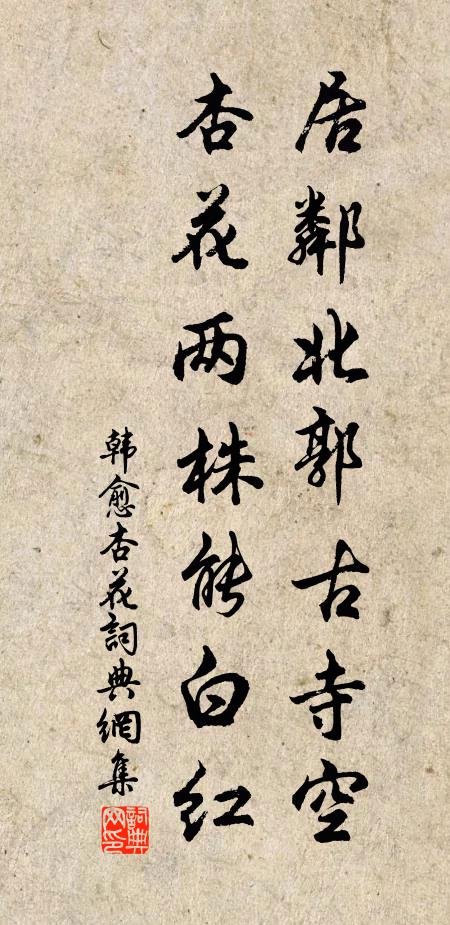 居鄰北郭古寺空
杏花两株能白红
韩愈杏花詞典網集
詞典网印